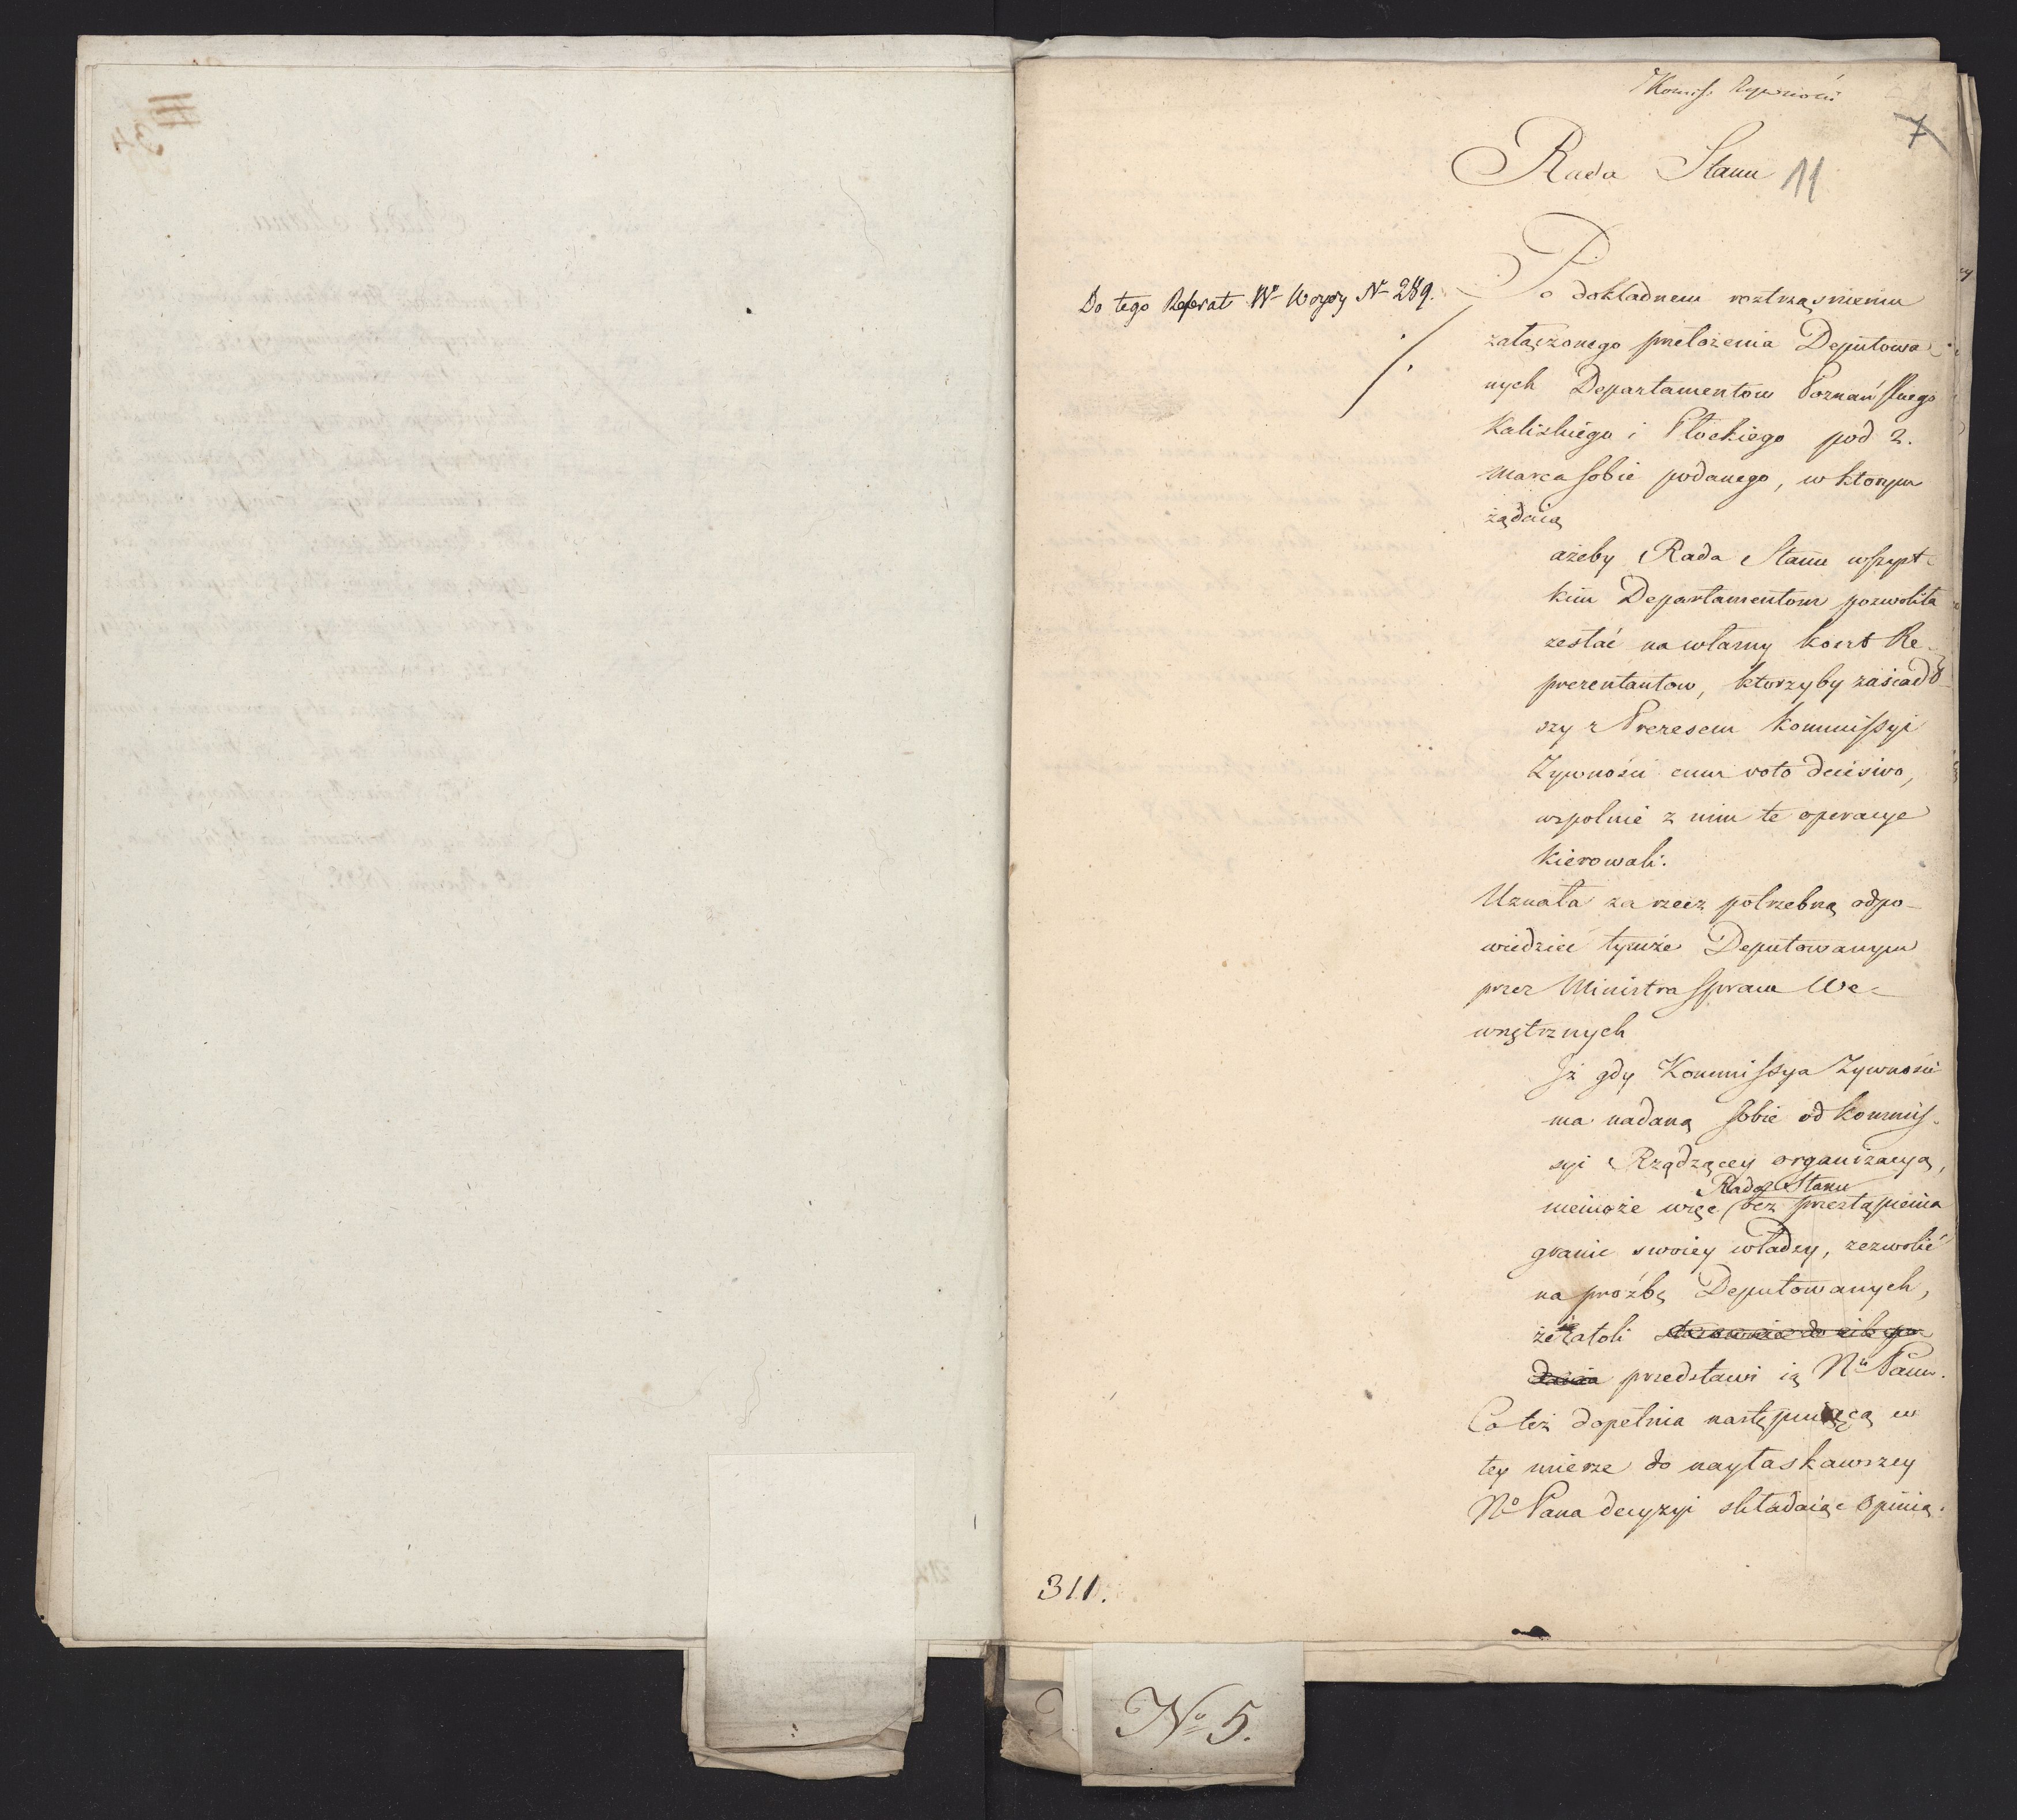 Kommis. Żywności
7
Rada Stanu 11
Do tego Referat Wo Wozyy No 289.
Po dokładnem roztrząsnieniu
załączonego przełożenia Deputowa=
nych Departamentow Poznańskiego
Kaliskiego i Płockiego pod 2.
Marca sobie podanego, w ktorym
żądaią
ażeby Rada Stanu wszyst=
kim Departamentom pozwoliła
zesłać na własny koszt Re=
prezentantow, ktorzyby zasiadł=
szy z Prezesem Kommissyi
Żywności cum voto decisivo,
wspolnie z nim te operacye
kierowali.
Uznała za rzecz potrzebną odpo=
wiedzieć tymże Deputowanym
przez Ministra Spraw We=
wnętrznych
Iż gdy Kommissya Żywności
ma nadaną sobie od Kommis=
syi Rządzącey organizacyą,
Rada Stanu
niemoże więc bez przestąpienia
granic swoiey władzy, zezwolić
na proźbę Deputowanych,
że iżatoli
przedstawi ią Nu Panu.
Co też dopełnia następuiącą w
tey mierze do nayłaskawszey
No Pana decyzyi składaiąc Opinią.
311.
No 5.